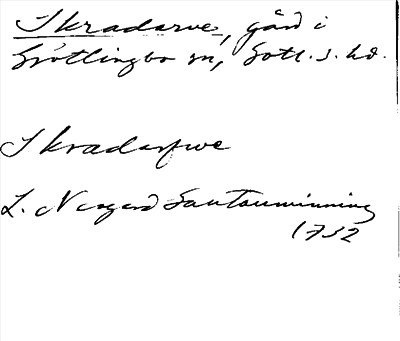 Skradarve, gård i
Gröttlingbo sn, Gotl. s. hd.
Skradarfwe
L. Nergård Santouminning
1732